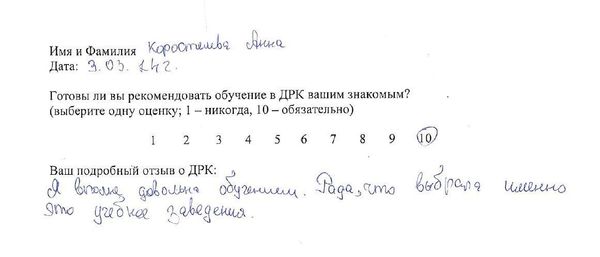 Имя и Фамилия Коростелева Анна
Дата: 3.03.14г.
Готовы ли вы рекомендовать обучение в ДРК вашим знакомым?
(выберите одну оценку; 1 – никогда, 10 – обязательно)
1 2 3 4 5 6 7 8 9 10
Ваш подробный отзыв о ДРК:
Я вполне довольна обучением. Рада, что выбрала именно
это учебное заведения.